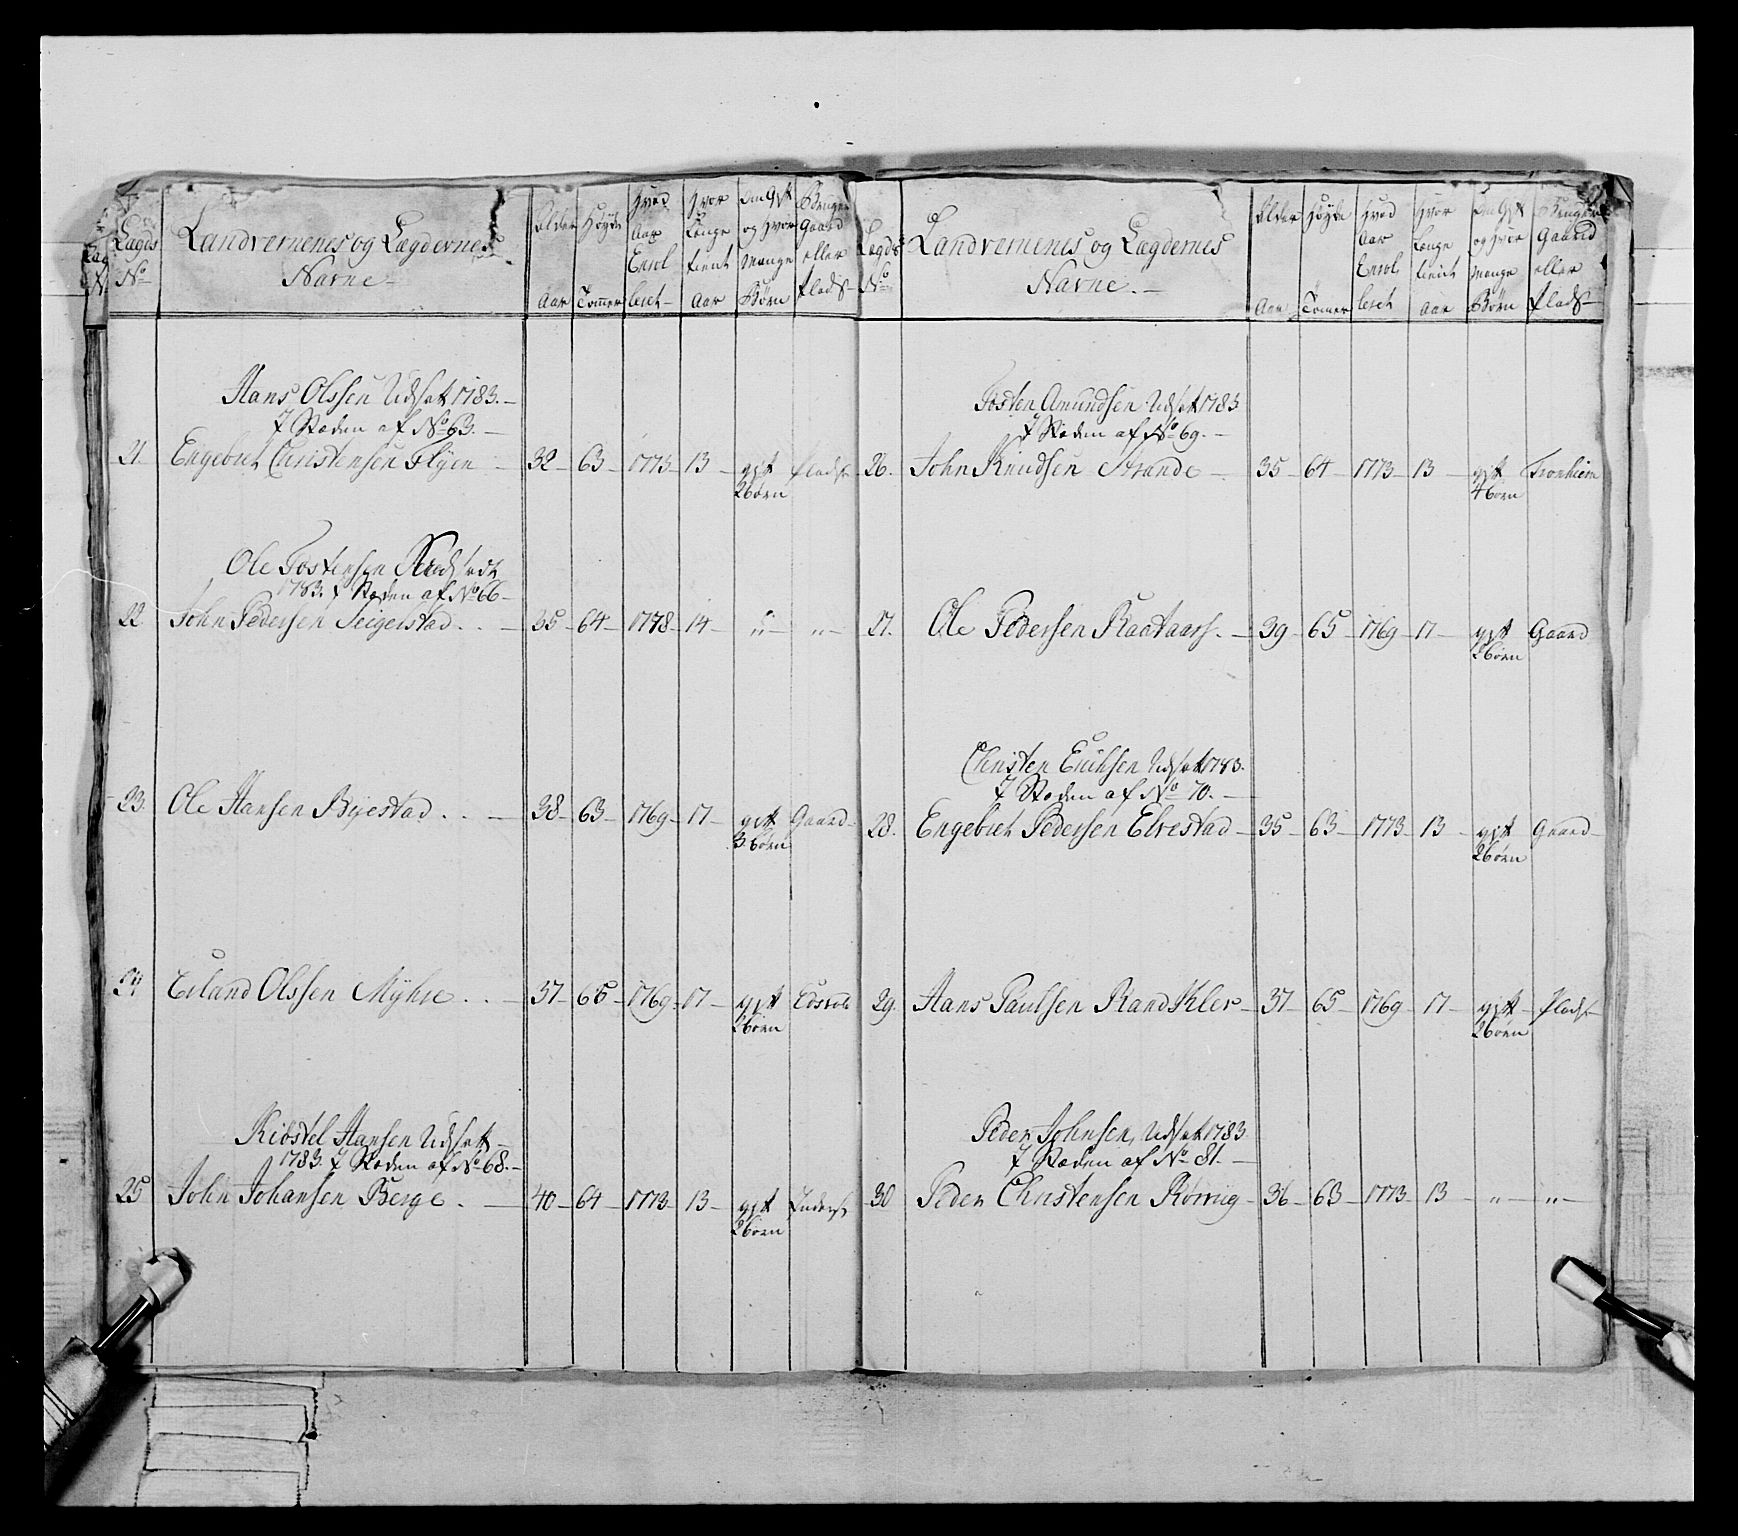 Lægds No
Landvernenes og Lægdernes Navne
Alder Aar
Høyde Tommer
Hvad Aar Enrolleret
Hvor Længe tient Aar
Om Gift og Hvor Mange Børn
Bruger Gaard eller Plads
Hans Olssen Udsat 1783.
I Stæden af No 63.
21 Engebret Christensen Flyen 32 63 1773 13 gift Plads
2 børn
Ole Tostensen
1783. I Stæden af No 66
22 John Pedersen Seigelstad 35 64 1778 14 " "
23. Ole Hansen Byestad 38 63 1769 17 gift Gaard
3 børn
24 Erland Olssen Myhre 37 65 1769 17 gift Edsvol
2 børn
Kiøstel Hansen Udsatt
1783. I Stæden af No 68.
25 John Johansen Berge 40 64 1773 13 gift Inderst
2 børn
Lægds No
Landvernenes og Lægdernes Navne.
Alder Aar
Høyde Tommer
Hvad Aar Enrolleret
Hvor Længe tient Aar
Om Gift og Hvor Mange Børn
Bruger Gaard eller Plads
Tosten Amundsen Udsat 1783
I Stæden af No 69.
26. John Knudsen Strande 35 64 1773 13 gift Tronhiem
4 børn
27. Ole Pedersen Raataars. 39 65 1769 17 gift Gaard
2 børn
Christen Erichsen Udsat 1783.
I Stæden af No 70.
28. Engebret Pedersen Elvestad 35 63 1773 13 gift Gaard
2 børn
29. Hans Paulsen RandKlev 37 65 1769 17 gift Plads
2 børn
Peder Johnsen, Udsat 1783.
I Stæden af No 81.
30 Peder Christensen Rønnig 36 63 1773 13 " "